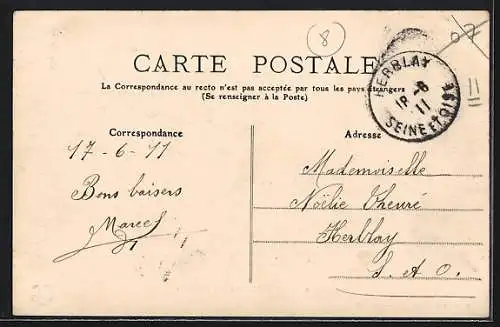 8
07
CARTE POSTALE
La Correspondance au recto n'est pas acceptée par tous les pays étrangers
(Se renseigner à la Poste)
HERBLAY
18 -6
11
SEINE ET OISE
11
Correspondance
17-6-11
Bons baisers
Marcel
Adresse
Mademoiselle
Noëlie
Herblay
S. A. O.